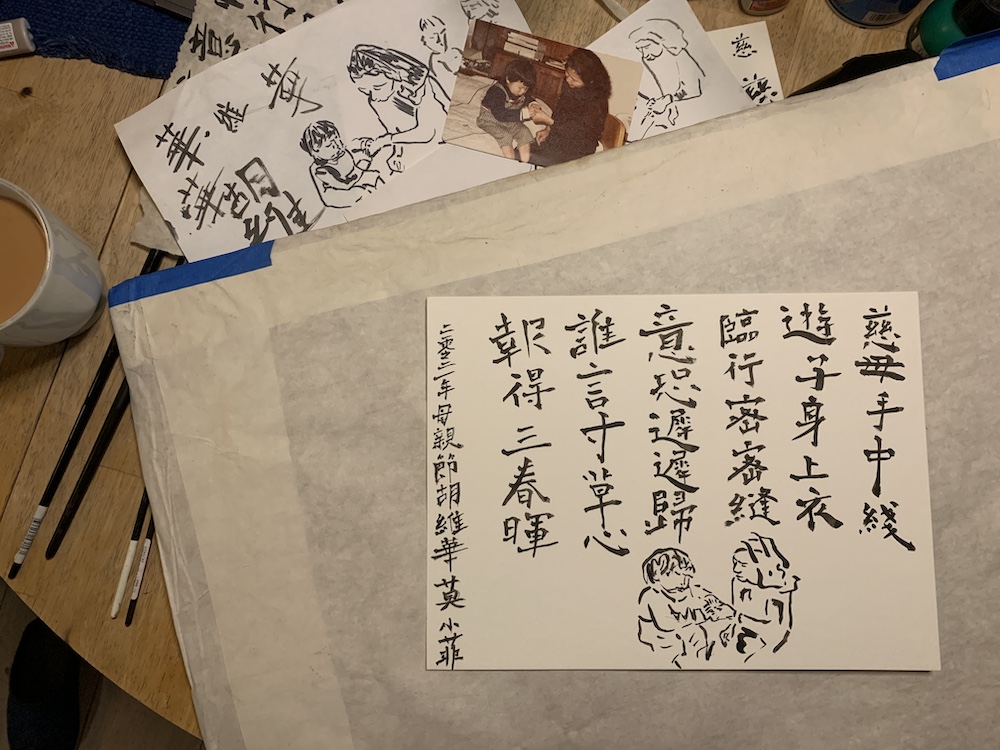 慈母手中綫
遊子身上衣
臨行密密縫
意恐遲遲歸
誰言寸草心
報得三春暉
二零二二年母親節胡維華莫小菲
華維華
華胡維
慈
慈
意行